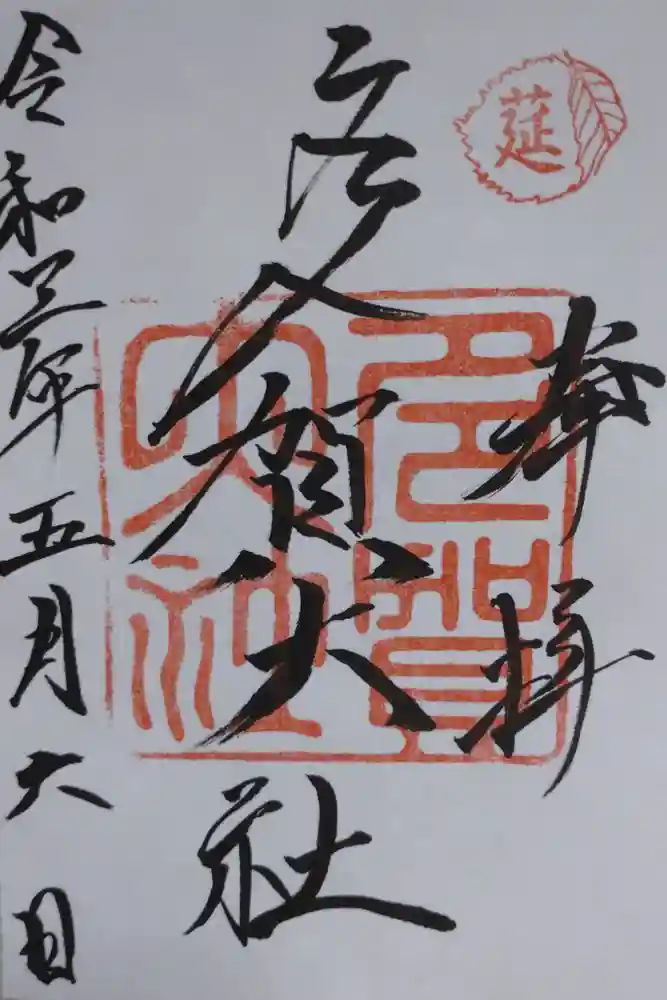 莚
奉拝
多賀大社
多賀
大社
令和三年五月六日